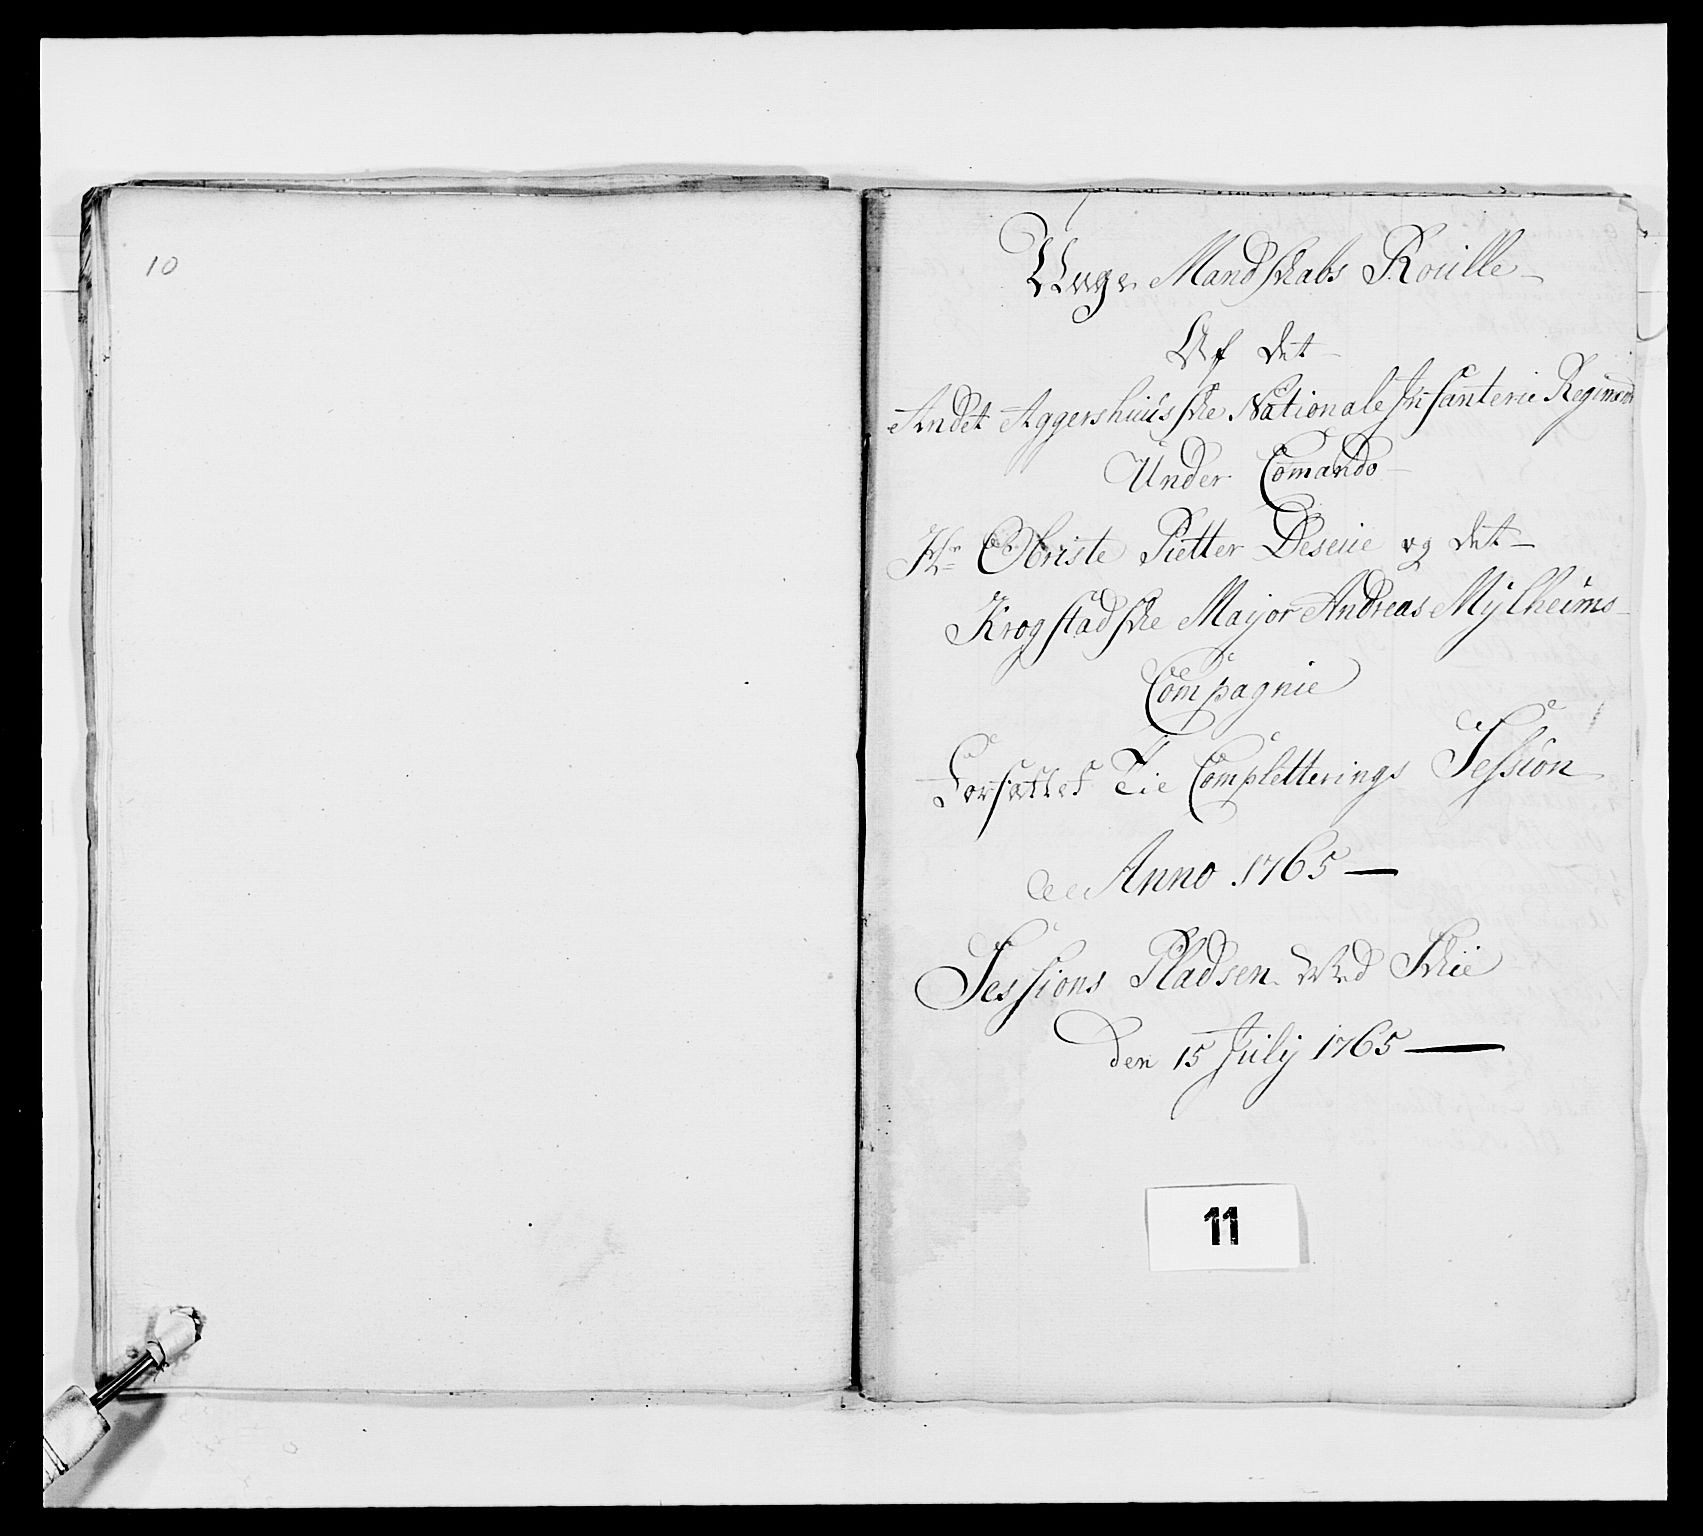 10
Unge Mandskabs Roulle
Af det
Andet Aggershuusske Nationale Infanterie Regiment
Under Comando
Hr Obriste Pietter Deseue og det
Krogstadske Major Andreas Mylheims
Compagnie
Forfattet Til Completterings Session
Anno 1765
Sessions Pladsen Ved Skie
den 15 July 1765
11